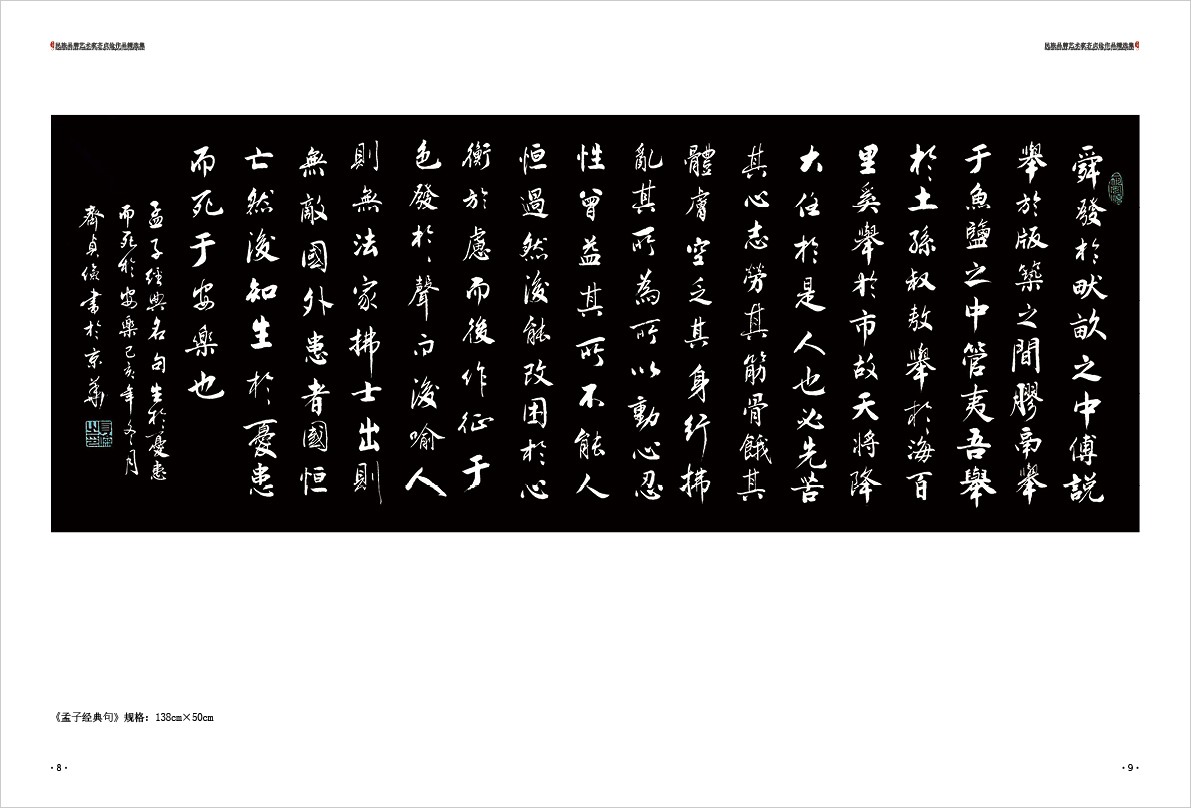 舜發於畎畝之中傅説
舉於版築之間膠鬲舉
于魚鹽之中管夷吾舉
於土孫叔敖舉於海百
里奚舉於市故天將降
大任於是人也必先苦
其心志勞其筋骨餓其
體膚空乏其身行拂
亂其所為所以動心忍
性曾益其所不能人
恒過然後能改困於心
衡於慮而後作征于
色發於聲而後喻人
則無法家拂士出則
無敵國外患者國恒
亡然後知生於憂患
而死于安樂也
孟子經典名句生於憂患
而死於安樂己亥年冬月
齊貞儉書於京華
《孟子经典句》规格：138cm×50cm
·8·
·9·